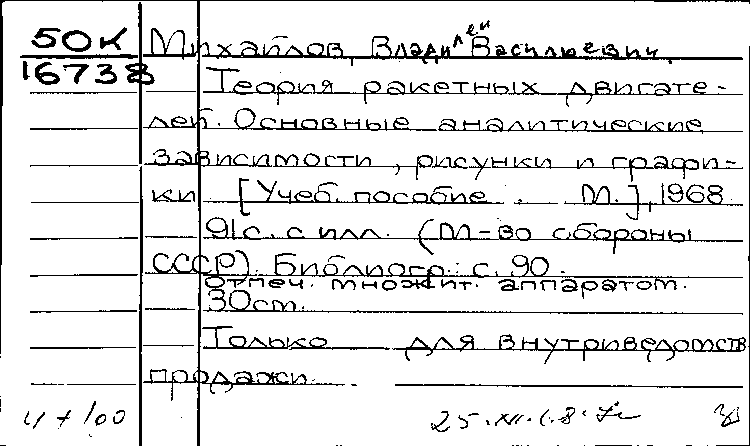 50К Михайлов, Владилен Васильевич.
16738
Теория ракетных двигате-
лей. Основные аналитические
зависимости, рисунки и графи-
ки [Учеб. пособие. М.], 1968
91с. с илл. (М-во обороны
СССР). Библиогр.: с. 90.
отпеч. множит. аппаратом.
30cm.
Только для внутриведомств
продажи.
4 + 100